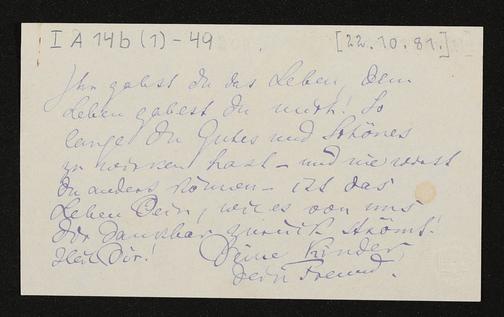 I A 14b (1) - 49 [22.10.81.]
Ihn gabst du das Leben, Dem
Leben gabest Du mich! So
lange Du Gutes und Schönes
zu wirken hast - und nie wirst
Du anders können - ist das
Leben Dein, wie es von uns
Dir dankbar zurück strömt!
Heil Dir! Deine Kinder,
Dein Freund.